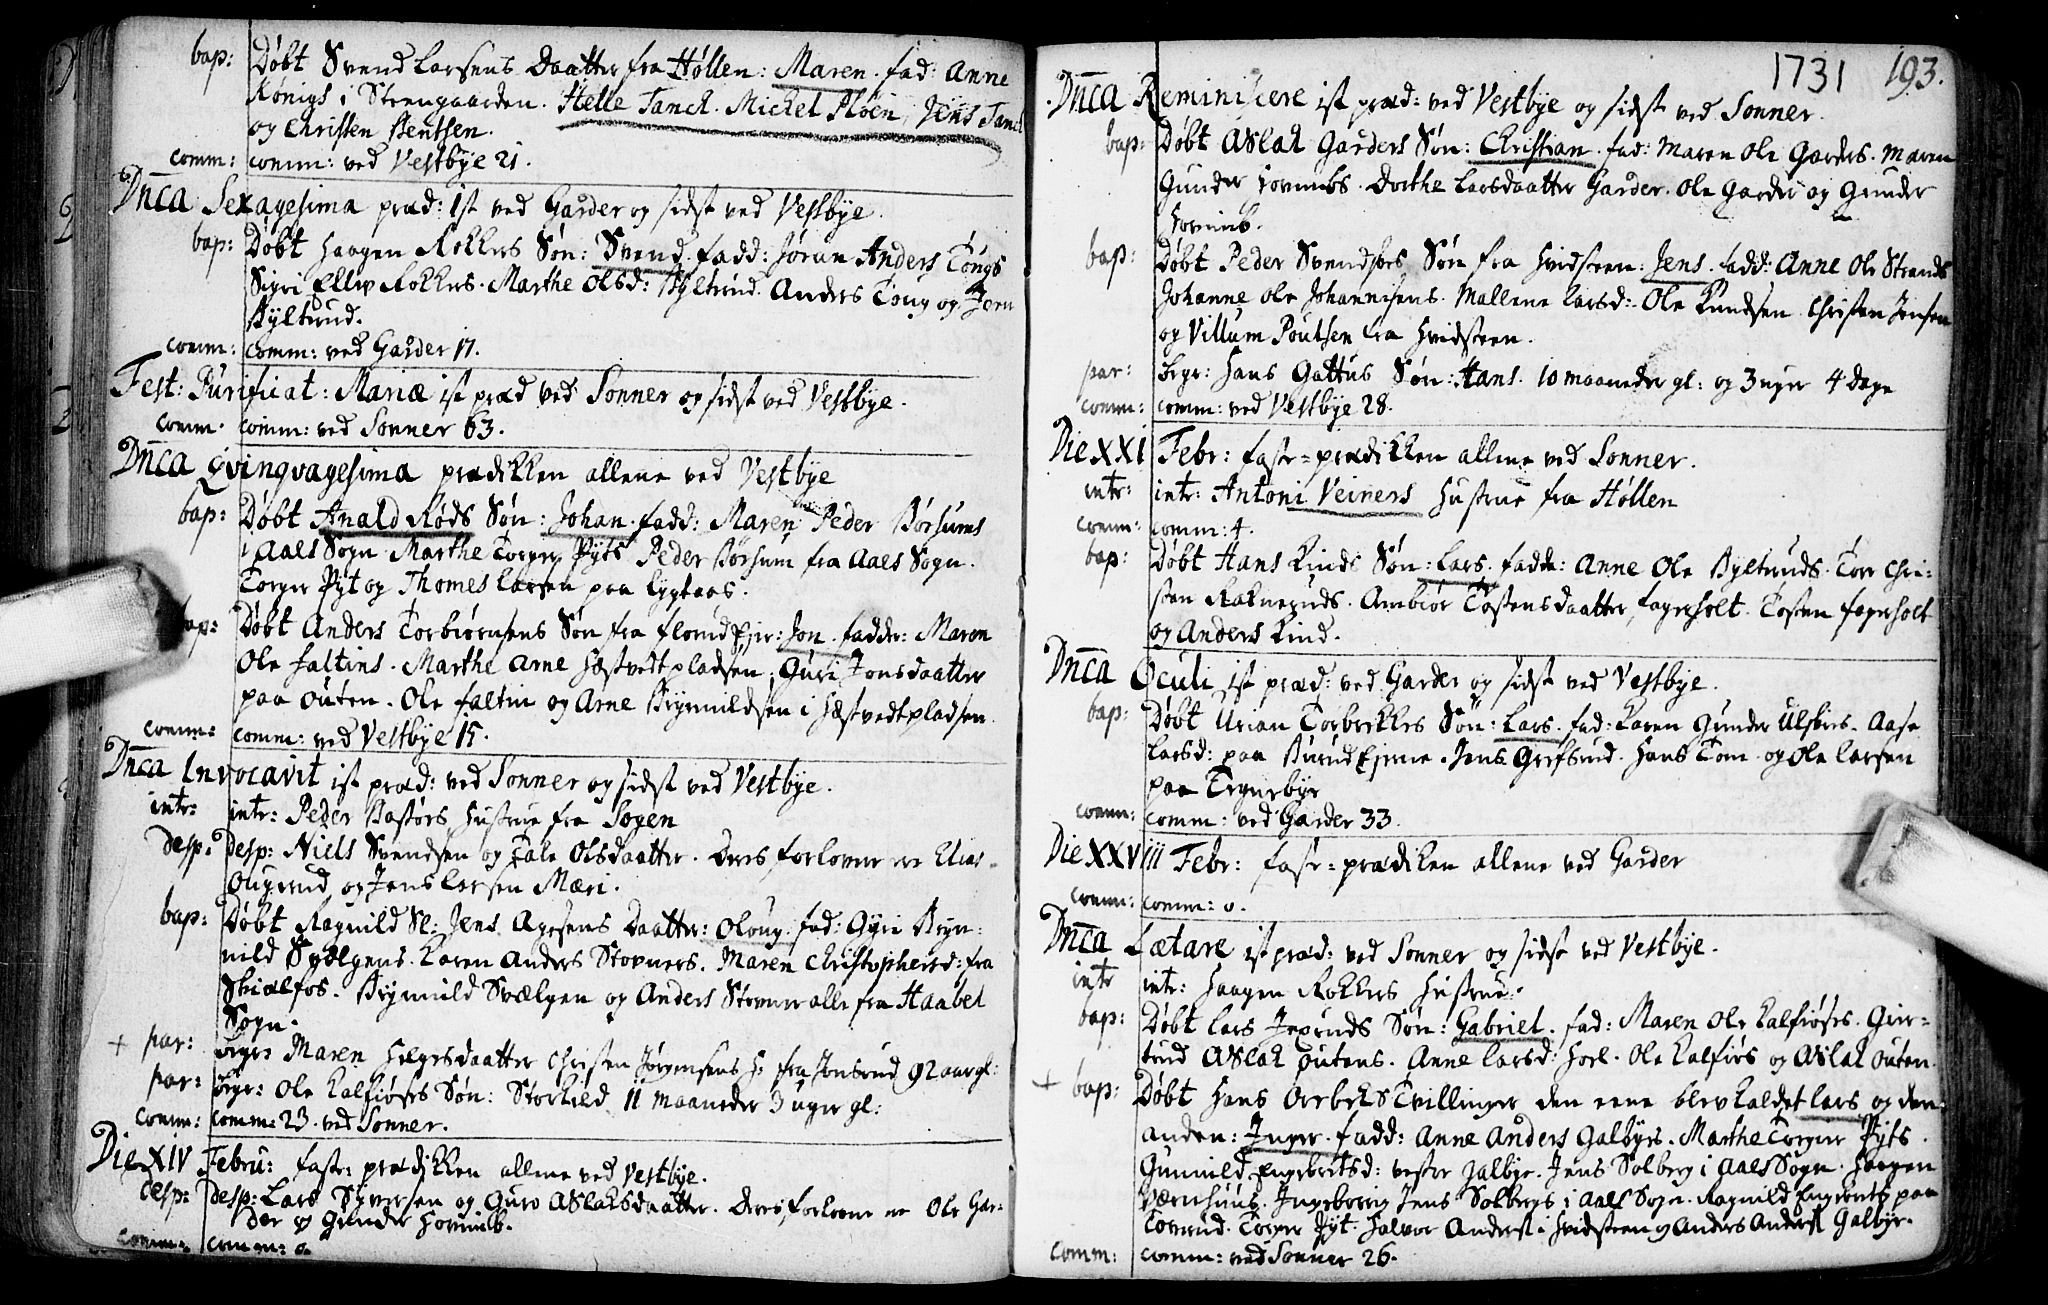 bap: Døbt Svend Larsens Daatter fra Høllen: Maren. fad: Anne
Königs i Strengaarden. Helle Tanck. Michel Ploen, Jens Tanck
og Christen Bentsen.
comm: comm: ved Vestbye 21.
Dnca Sexagesima præd: ist ved Garder og sidst ved Vestbye.
bap: Døbt Haagen Rokkers Søn: Svend. fadd: Jøran Anders Tougs
Sigri Ellw Rokkers. Marthe Olsd: Byltrud. Anders Toug og Jern
Byltrud.
comm: comm: ved Garder 17.
Fest: Purificat: Mariæ ist præd ved Sonner og sidst ved Vestbye.
comm. comm: ved Sonner 63.
Dnca Qvinqvagesima prædikken allene ved Vestbye
bap: Døbt Anald Røds Søn: Johan. fadd: Maren Peder Børsums
i Aaels Sogn. Marthe Torger Pyts Peder Børsum fra Aaels Sogn.
Torger Pyt og Thomes Larsen paa Lygtaas.
bap: Døbt Anders Torbiørnsens Søn fra florud Ejer: Jon. faddr: Maren
Ole faltins. Marthe Arne Hæstvedtpladsen. Guri Jonsdaatter
paa Outen. Ole faltin og Arne Brynnildsen i Hæstvedtpladsen.
comm: comm: ved Vestbye 15.
Dnca Invocavit ist præd: ved Sonner og sidst ved Vestbye.
intr: intr: Peder Bastørs Hustrue fra Sogen
desp: desp: Niels Svendsen og Tale Olsdaatter. Deres forlover ere Elias
Ougerud og Jens Larsen Mæri.
bap: Døbt Ragnild Sl: Jens Agesens Daatter: Oloug. fad: Gyri Bryn-
nild Svælgens. Karen Anders Stovners. Maren Christophersd: fra
Skialfos. Brynnild Svælgen og Anders Stovner alle fra Haabel
Sogn.
+ par: begr: Maren Helgesdaatter Christen Jørgensens H: fra Jonsrud 92 aar gl:
par: begr: Ole Kalfiøses Søn: Storkild 11 maaneder 3 uger gl:
comm: comm: 23. ved Sonner.
Die XIV Febru: faste: prædikken allene ved Vestbye.
desp: desp: Lars Syversen og Guro Aslaksdaatter. Deres forlovere ere Ole Gar-
der og Gunder Hovimb.
comm: comm: 0.
1731 193.
Dnca Reminiscere ist præd: ved Vestbye og sidst ved Sonner.
bap: Døbt Aslak Garders Søn: Christian. fad: Maren Ole Garders. Maren
Gunder Hovimbs. Dorthe Larsdaatter Garder. Ole Garder og Gunder
Hovimb.
bap: Døbt Peder Svendsens Søn fra Hvidsteen: Jens. fadd: Anne Ole Strands
Johanne Ole Johannisens. Mallene Larsd: Ole Knudsen. Christen Jensen
og Villum Poulsen fra Hvidsteen.
par: begr: Hans Gattus Søn: Hans. 10 maaneder gl: og 3 uger 4 Dage
comm: comm: ved Vestbye 28.
Die XXI Febr: faste-prædikken allene ved Sonner.
intr: intr: Antoni Veiners Hustrue fra Høllen
comm: comm: 4.
bap: Døbt Hans Kinds Søn: Lars. faddr: Anne Ole Byltruds. Tore Chri-
sten Rakneruds. Ambiør Tostensdaatter fagerholt. Tosten fagerholt
og Anders Kind.
Dnca Oculi ist præd: ved Garder og sidst ved Vestbye.
bap: Døbt Urian Torbekkes Søn: Lars. fad: Karen Gunder Ulfsbies. Aase
Larsd: paa Burud Ejerne. Jens Grefsrud. Hans Tom og Ole Larsen
paa Tegnebye
comm: comm: ved Garder 33.
Die XXVIII Febr: faste-prædiken allene ved Garder
comm: comm: 0.
Dnca Lætare ist præd: ved Sonner og sidst ved Vestbye.
intr intr: Haagen Rokkers Hustrue.
bap: Døbt Lars Jegruds Søn: Gabriel. fad: Maren Ole Kalfiøses. Gier-
trud Aslak Outens. Anne Larsd: Horl. Ole Kalfiøs og Aslak Outen.
+ bap: Døbt Hans Orrbeks Tvillinger den eene blev kaldet Lars og den
anden: Inger. fadd: Anne Anders Galbyes. Marthe Torger Pyts.
Gunnild Engebritsd: vestre Galbye. Jens Solberg i Aaels Sogn. Haagen
Værnhuus. Ingeborrig Jens Solbergs i Aaels Sogn. Ragnild Engebrits paa
Torrud. Torger Pyt. Halvor Anders: Hvidsteen og Anders Anders: Galbye.
comm: comm: ved Sonner 26.